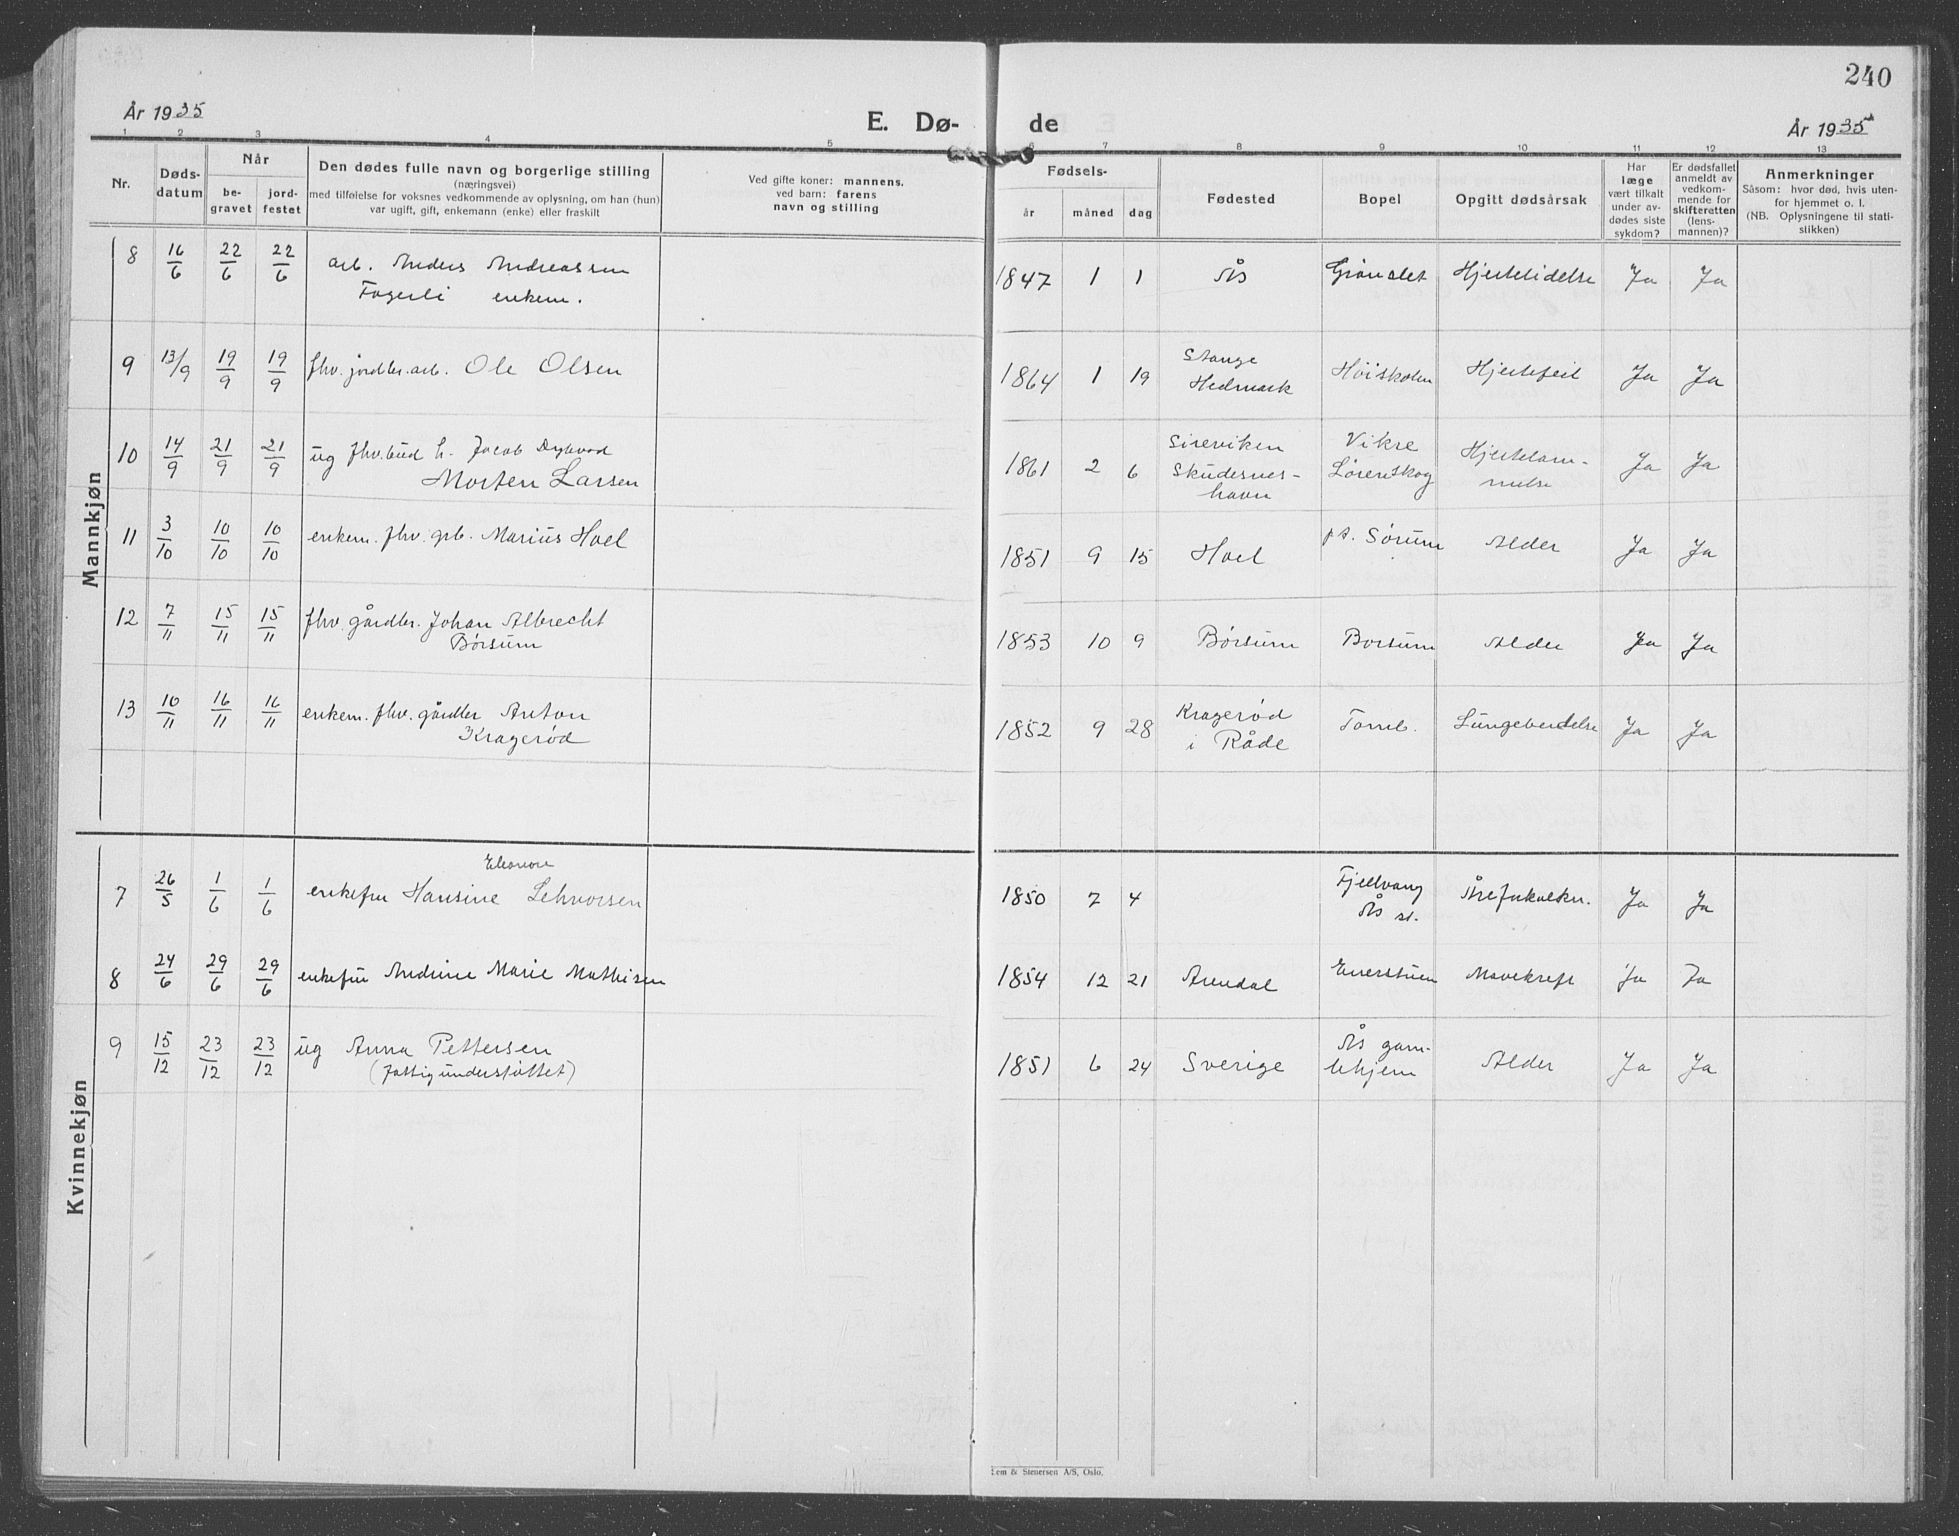 240
År 1935
E. Dø-
de
År 1935
1 2 3 4 5 6 7 8 9 10 11 12 13
Nr.
Døds-
datum
Når
be-
gravet
jord-
festet
Den dødes fulle navn og borgerlige stilling
(næringsvei)
med tilføielse for voksnes vedkommende av oplysning, om han (hun)
var ugift, gift, enkemann (enke) eller fraskilt
Ved gifte koner: mannens.
ved barn: farens
navn og stilling
Fødsels-
år
måned
dag
Fødested
Bopel
Opgitt dødsårsak
Har
læge
vært tilkalt
under av-
dødes siste
sykdom?
Er dødsfallet
anmeldt av
vedkom-
mende for
skifteretten
(lens-
mannen)?
Anmerkninger
Såsom: hvor død, hvis uten-
for hjemmet o. l.
(NB. Oplysningene til stati-
stikken)
Mannkjøn
8 16/6 22/6 22/6 arb. Anders Andreassen
Fagerli enkem.
1847 1 1 Ås Grønslet Hjertelidelse Ja Ja
9 13/9 19/9 19/9 fhv. jordbr. arb. Ole Olsen
1864 1 19 Stange
Hedmark
Høiskolen Hjertefeil Ja Ja
10 14/9 21/9 21/9 ug fhv. bud h. Jacob Dybwad
Morten Larsen
1861 2 6 Sireviken
Skudesnes-
havn
Vikre
Lørenskog
Hjertelam-
melse
Ja Ja
11 3/10 10/10 10/10 enkem. fhv. grb. Marius Hoel
1851 9 15 Hoel pt. Sørum Alder Ja Ja
12 7/11 15/11 15/11 fhv. gårdbr. Johan Albrecht
Børsum
1853 10 9 Børsum Borsum Alder Ja Ja
13 10/11 16/11 16/11 enkem. fhv. gårdbr Anton
Kragerød
1852 9 28 Kragerød
i Råde
Tomb. Lungebetendelse Ja Ja
Kvinnekjøn
Eleonore
7 26/5 1/6 1/6 enkefru Hansine Sehvorsen
1850 7 4 Fjellvang
Ås st.
Åreforkalkn. Ja Ja
8 24/6 29/6 29/6 enkefru Andrine Marie Mathisen
1854 12 21 Arendal Enerstuen Mavekreft Ja Ja
9 15/12 23/12 23/12 ug Anna Pettersen
(fattigunderstøttet)
1851 6 24 Sverige Ås gam-
lehjem
Alder Ja Ja
Lem & Stenersen A/S, Oslo.